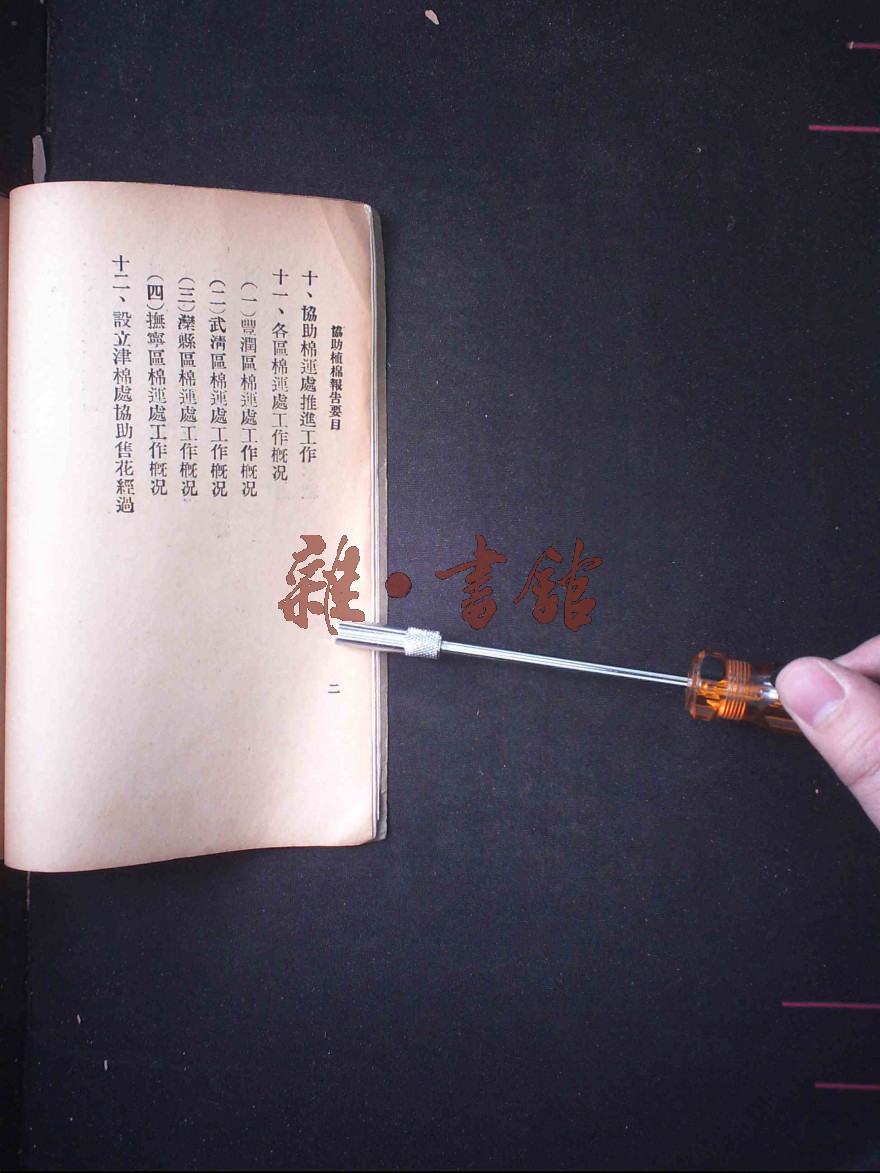 協助植棉報告要目
十、協助棉運處推進工作
十一、各區棉運處工作槪況
(一)豐潤區棉運處工作槪況
(二)武淸區棉運處工作槪況
(三)灤縣區棉運處工作槪況
(四)撫寧區棉運處工作槪況
十二、設立津棉處協助售花經過
二
雜·書館